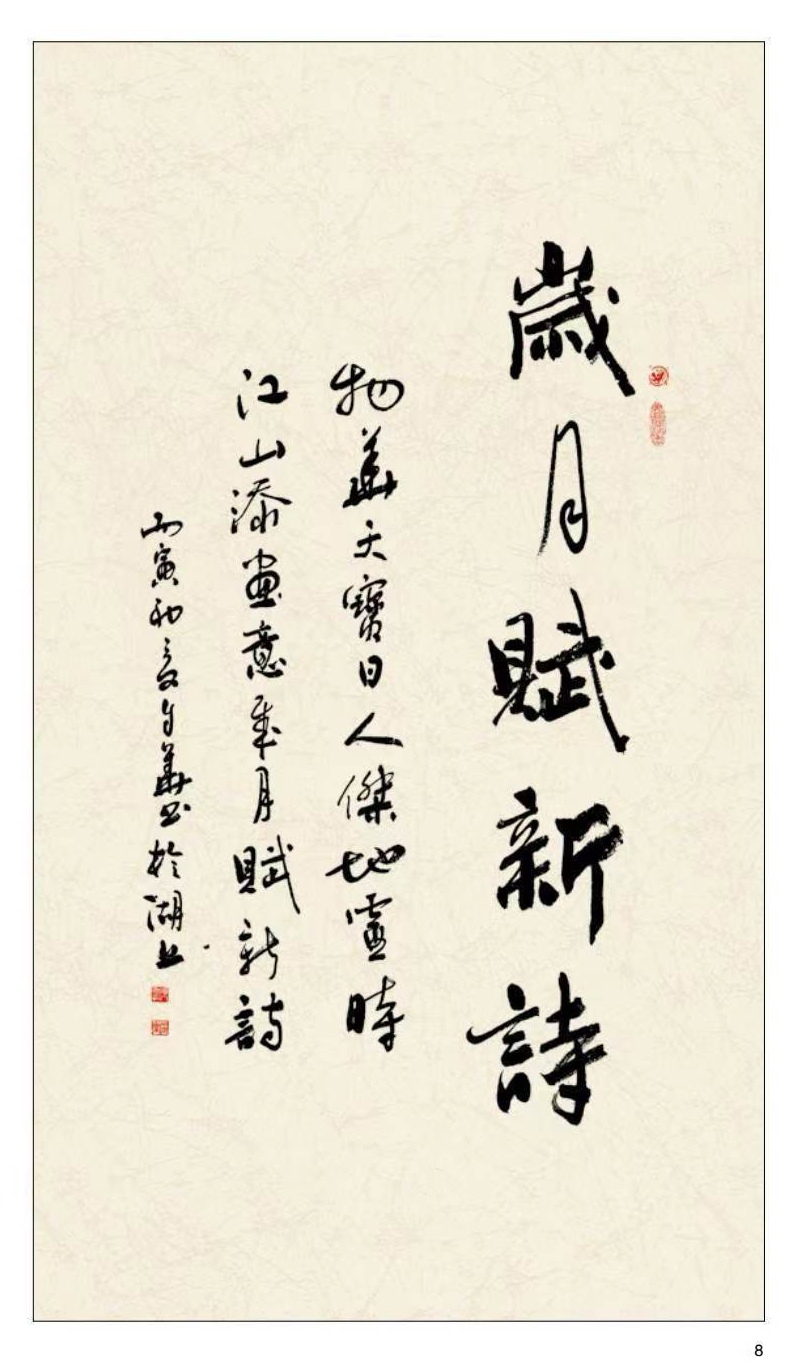 歲月賦新詩
物華天寶日人傑地靈時
江山添畫意歲月賦新詩
丙寅初夏 華書於湖上
8